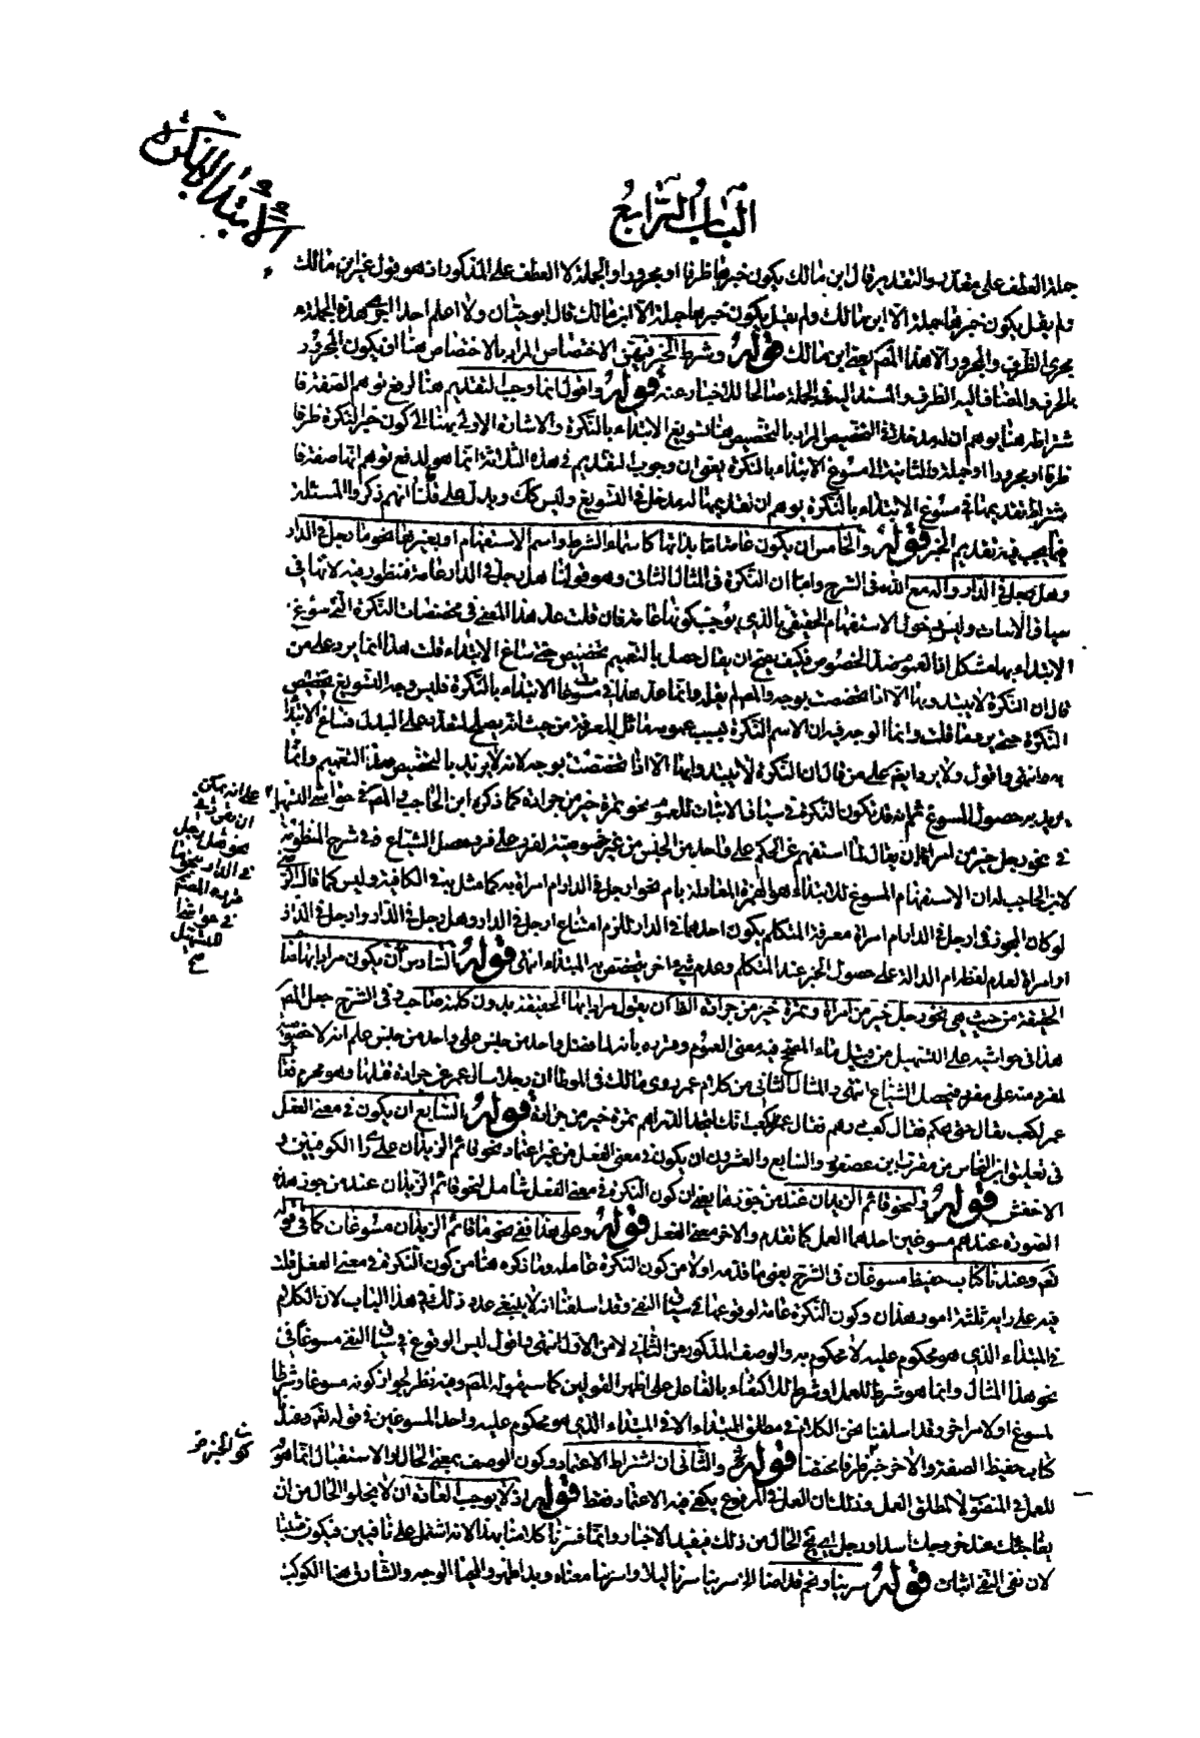 الابتداء بالنكرة
الباب الرابع
جملة العطف على مقدر والتقدير قال ابن مالك يكون خبرها ظرفا او مجرورا او الجملة لا العطف على المذكور انه هو قول غير ابن مالك
ولم يقل بكون خبرها جملة الا ابن مالك ولم يقل بكون خبرها جملة الا ابن مالك قال ابو حيان ولا اعلم احدا اجرى هذه الجملة
مجرى الظرف والمجرور الا هذا المص يعني ابن مالك قوله وشرط الخبر فيهن الاختصاص المراد بالاختصاص هنا ان يكون المجرور
بالحرف والمضاف اليه الظرف والمسند اليه في الجملة صالحا للاخبار عنه قوله واقول انما وجب التقديم هنا لرفع توهم الصفة فا
شتراطه هنا يوهم ان له مدخلا في التخصيص المراد بالتخصيص هنا تسويغ الابتداء بالنكرة والاشارة الاولى بهنا الى كون خبر النكرة ظرفا
ظرفا او مجرورا او جملة والثانية الى مسوغ الابتداء بالنكرة يعني ان وجوب التقديم في هذه الثلاثة انما هو لدفع توهم انها صفة فا
شتراط تقديمها في مسوغ الابتداء بالنكرة يوهم ان تقديمها له مدخل في التسويغ وليس كذلك ويدل على قلنا انهم ذكروا المسئلة
فيما يجب فيه تقديم الخبر قوله والخامس ان يكون عامة اما بذاتها كاسماء الشرط واسم الاستفهام او بغيرها نحو ما رجل في الدار
وهل رجل في الدار واله مع الله في الشرح واما ان النكرة في المثال الثاني وهو قولنا هل رجل في الدار عامة فمنظور فيه لانها في
سياق الاثبات وليس دخول الاستفهام الحقيقي بالذي يوجب كونها عامة فان قلت عد هذا المعنى في مخصصات النكرة التي تسوغ
الابتداء بها مشكل اذا العموم ضد الخصوص فكيف يصح ان يقال حصل بالتعميم تخصيص حتى ساغ الابتداء قلت هذا انما يرد على من
قال ان النكرة لا يبتدء بها الا اذا تخصصت بوجه والمص لم يقله وانما عد هذا في مسوغا الابتداء بالنكرة فليس وجه التسويغ تخصيص
النكرة حتى يرد ما قلت وانما الوجه فيه ان الاسم النكرة بسبب عمومه مماثل للمعرفة من حيث انه يصلح لتعدده على البدل فساغ الابتداء
به انتهى واقول ولا يرد ايضا على من قال ان النكرة لا يبتدء بها الا اذا تخصصت بوجه لانه لا يريد بالتخصيص ضد التعميم وانما
يريد به حصول المسوغ ثم انه قد تكون النكرة في سياق الاثبات للعموم نحو تمرة خير من جرادة كما ذكره ابن الحاجب والمص في حواشي التسهيل
في نحو رجل خير من امراة
لابن الحاجب ان الاستفهام المسوغ للابتداء هو الهمزة المعادلة بام نحو ارجل في الدار ام امراة به كما مثل به في الكافية وليس كما قال اذ
لو كان المجوز في ارجل في الدار ام امراة معرفة المتكلم بكون احدهما في الدار للزم امتناع ارجل في الدار وهل رجل في الدار وارجل في الدار
او امراة لعدم لفظ ام الدالة على حصول الخبر عند المتكلم وعدم شيء اخر يتخصص به المبتداء انتهى قوله السادس ان يكون مرادا بها
الحقيقة من حيث هي نحو رجل خير من امراة وتمرة خير من جرادة
هذا في حواشيه على التسهيل من قبيل
لفرد منه على مفرد فيحصل الشياع انتهى والمثال الثاني من كلام عمر روى مالك في الموطا ان رجلا سال عمر عن جرادة قتلها وهو محرم فقال
عمر لكعب تعال حتى نحكم فقال كعب درهم فقال عمر لكعب انك لتجد الدراهم تمرة خير من جرادة قوله السابع ان يكون في معنى الفعل
في تعليق ابن النحاس من مقرب ابن عصفور والسابع والعشرون ان يكون في معنى الفعل من غير اعتماد نحو قائم الزيدان على راى الكوفيين و
الاخفش قوله ولنحو قائم الزيدان عند من جوزها يعني ان كون النكرة في معنى الفعل شامل لنحو قائم الزيدان عند من جوز هذه
الصورة عندهم مسوغين احدهما العمل كما تقدم والاخر معنى الفعل قوله وعلى هذا ففي نحو ما قائم الزيدان مسوغات كما في قوله
تعم وعندنا كتاب حفيظ مسوغان في الشرح يعني ما قدمه اولا من كون النكرة عاملة وما ذكره هنا من كون النكرة في معنى الفعل قلت
فيه على رايه ثلثة امور هذان وكون النكرة عامة لوقوعها في سياق النفي وقد اسلفنا انه لا ينبغي عد ذلك في هذا الباب لان الكلام
في المبتداء الذي هو محكوم عليه لا محكوم به والوصف المذكور من الثاني لا من الاول انتهى واقول ليس الوقوع في سياق النفي مسوغا في
نحو هذا المثال وانما هو شرط للعمل او شرط للاكتفاء بالفاعل على اظهر القولين كما سيقوله المص وفيه نظر لجواز كونه مسوغا وشرطا
لمسوغ او لامر اخر وقد اسلفنا نحن الكلام في مطلق المبتداء لا في المبتداء الذي هو محكوم عليه واحد المسوغين في قوله تعم وعندنا
كتاب حفيظ الصفة والاخر خبر ظرفا مختصا قوله والثاني ان اشتراط الاعتماد وكون الوصف بمعنى الحال والاستقبال انما هو
للعمل في المنصوب لا لمطلق العمل وذلك ان العمل في المرفوع يكفي فيه الاعتماد فقط قوله اذ لا يوجب العادة ان لا يخلوا الحال من ان
يفاجئك عند خروجك اسد او رجل اي تمنع الحال من ذلك فيفيد الاخبار وانما فسرنا كلامنا بهذا لانه اشتمل على نافيين فيكون مثبتا
لان نفي النفي اثبات قوله سرينا ونجم قد اضاء الخ سرينا سرنا ليلا واسرينا معناه وبدا ظهر والمحيا الوجه والشارق هنا الكوكب
على انه يمكن
ان
نحو هل رجل
في الدار
المص
في حواشي
التسهيل